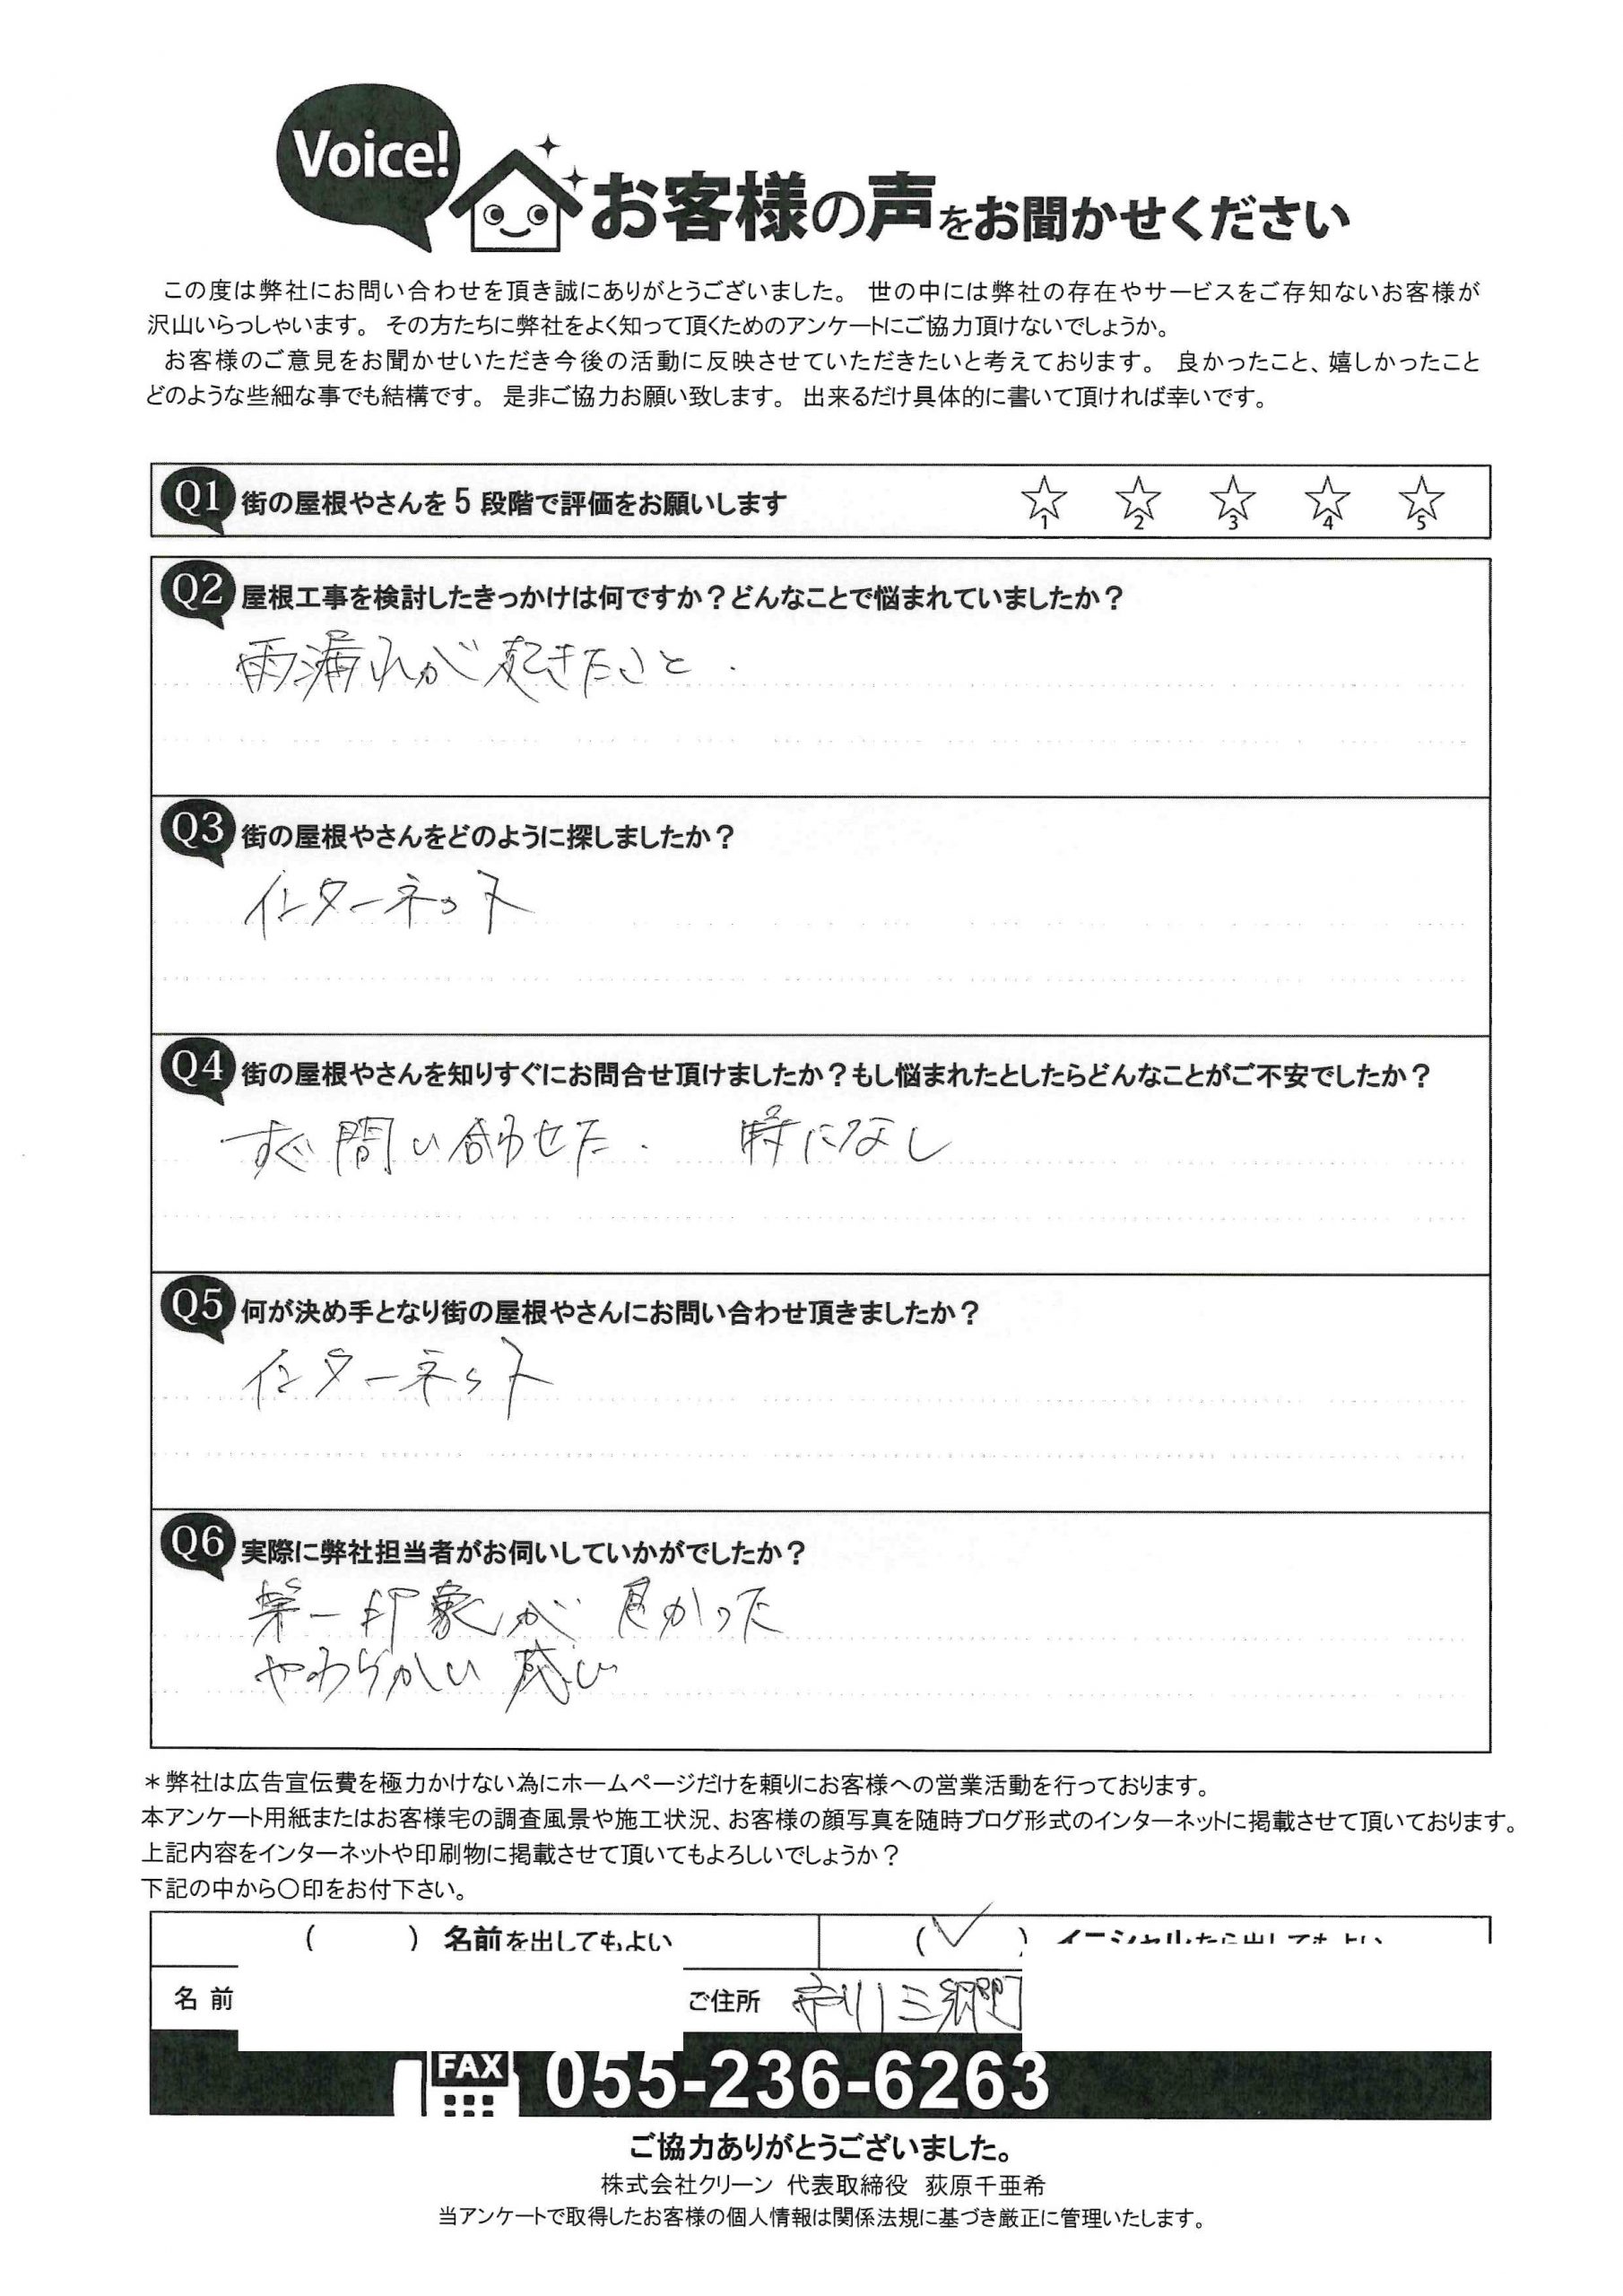 Voice!
お客様の声をお聞かせください
この度は弊社にお問い合わせを頂き誠にありがとうございました。 世の中には弊社の存在やサービスをご存知ないお客様が
沢山いらっしゃいます。 その方たちに弊社をよく知って頂くためのアンケートにご協力頂けないでしょうか。
お客様のご意見をお聞かせいただき今後の活動に反映させていただきたいと考えております。 良かったこと、嬉しかったこと
どのような些細な事でも結構です。 是非ご協力お願い致します。 出来るだけ具体的に書いて頂ければ幸いです。
Q1 街の屋根やさんを5段階で評価をお願いします ☆1 ☆2 ☆3 ☆4 ☆5
Q2 屋根工事を検討したきっかけは何ですか？どんなことで悩まれていましたか？
雨漏れが起きたこと.
Q3 街の屋根やさんをどのように探しましたか？
インターネット
Q4 街の屋根やさんを知りすぐにお問合せ頂けましたか？もし悩まれたとしたらどんなことがご不安でしたか？
すぐ問い合わせた. 特になし
Q5 何が決め手となり街の屋根やさんにお問い合わせ頂きましたか？
インターネット
Q6 実際に弊社担当者がお伺いしていかがでしたか？
第一印象が良かった
やわらかい感じ
＊弊社は広告宣伝費を極力かけない為にホームページだけを頼りにお客様への営業活動を行っております。
本アンケート用紙またはお客様宅の調査風景や施工状況、お客様の顔写真を随時ブログ形式のインターネットに掲載させて頂いております。
上記内容をインターネットや印刷物に掲載させて頂いてもよろしいでしょうか？
下記の中から〇印をお付下さい。
( ) 名前を出してもよい (✓) イニシャルなら出してもよい
名前 ご住所 市川三郷町
FAX 055-236-6263
ご協力ありがとうございました。
株式会社クリーン 代表取締役 荻原千亜希
当アンケートで取得したお客様の個人情報は関係法規に基づき厳正に管理いたします。